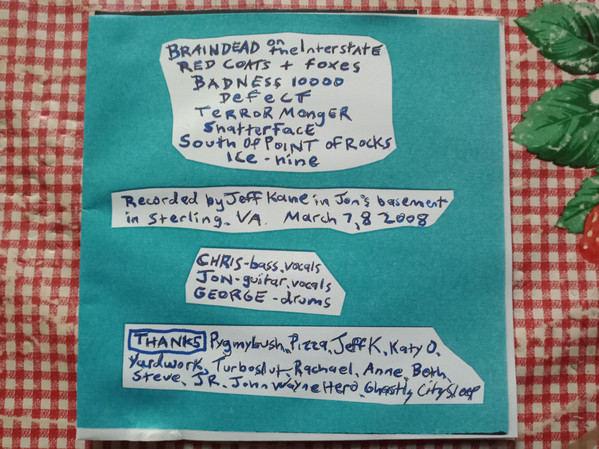 BRAINDEAD on the Interstate
RED COATS + foxes
BADNESS 10000
Defect
TERROR MONGER
Shatterface
South Of POINT Of ROCKS
ICE-nine
Recorded by Jeff Kane in Jon's basement
in Sterling, VA. March 7,8 2008
CHRIS-bass, vocals
JON-guitar, vocals
GEORGE-drums
THANKS Pygmylush, Pizza, Jeff K, Katy O,
Yardwork, Turboslut, Rachael, Anne, Beth,
Steve, JR, John Wayne Hero, Ghastly City Sleep